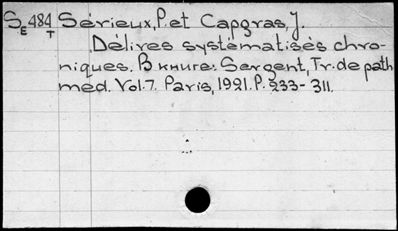 SE 484 T Sérieux, P. et Capgras, J.
Délires systématisés chro-
niques. В книге: Sergent, Tr. de path
méd. Vol. 7. Paris, 1921. P. 233-311.